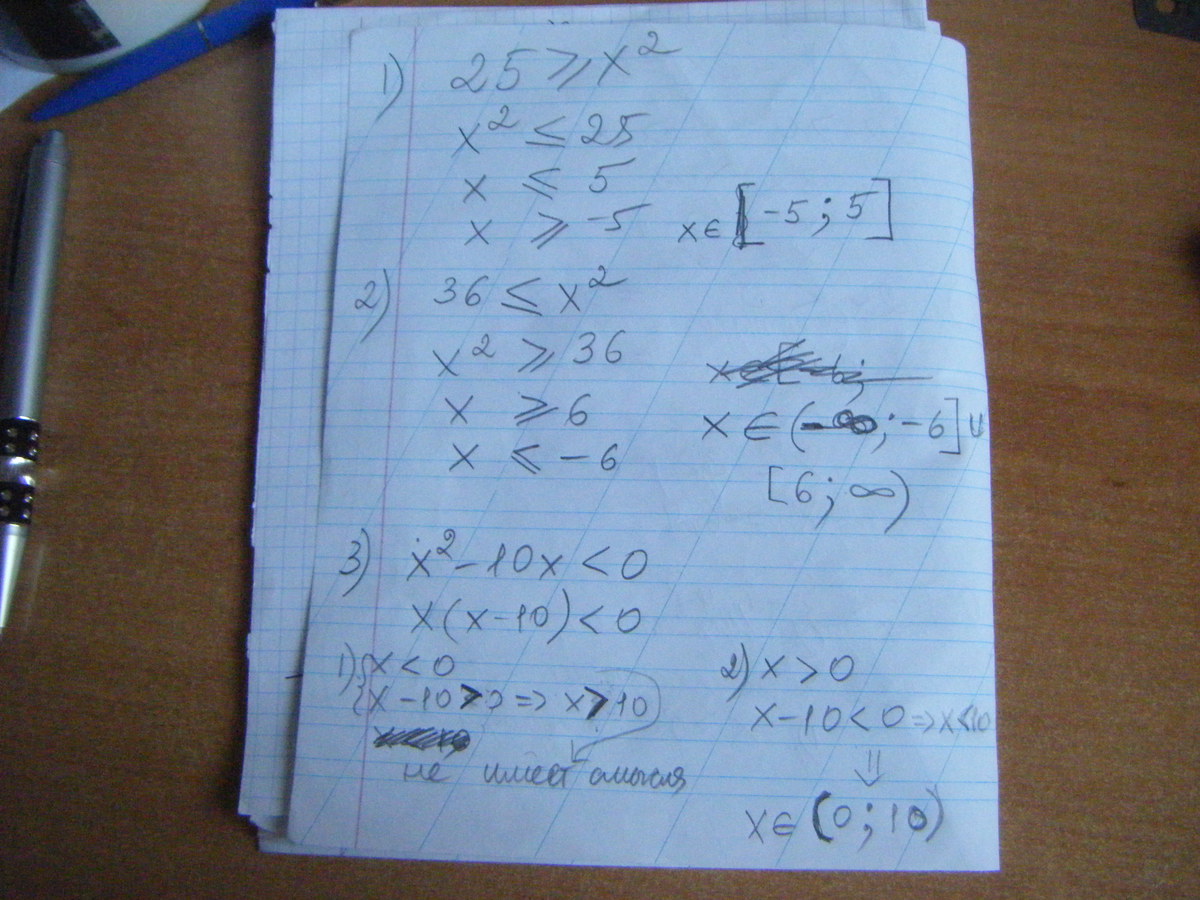 1) 25 ⩾ x²
x² ≤ 25
x ≤ 5
x ⩾ -5 x ∈ [-5; 5]
2) 36 ≤ x²
x² ⩾ 36
x ⩾ 6 x ∈ (-∞; -6] ∪
x ≤ -6 [6; ∞)
3) x² - 10x < 0
x(x-10) < 0
1) { x < 0
x - 10 > 0 => x > 10
не имеет смысла
2) x > 0
x - 10 < 0 => x < 10
⇓
x ∈ (0; 10)